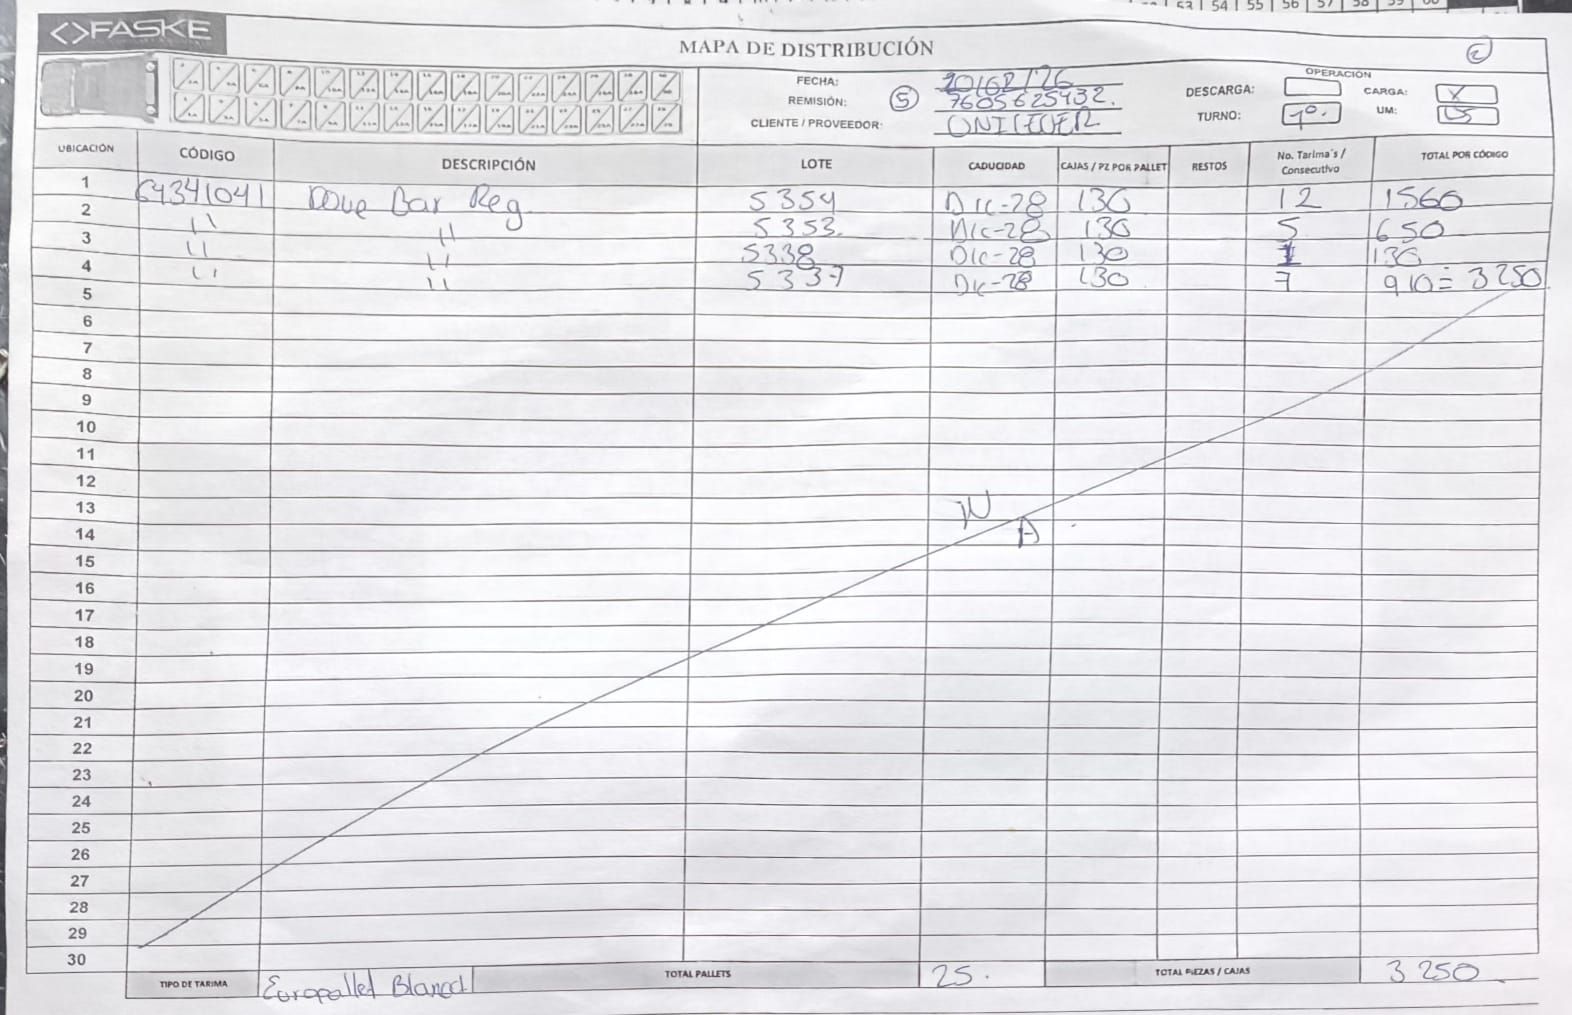 53 54 55 56 57 58 59 60
<>FASKE
MAPA DE DISTRIBUCIÓN
2
FECHA: 20/02/26
REMISIÓN: 5 7605625432.
CLIENTE / PROVEEDOR: UNILEVER
OPERACIÓN
DESCARGA: CARGA: X
TURNO: 1º. UM:
UBICACIÓN CÓDIGO DESCRIPCIÓN LOTE CADUCIDAD CAJAS / PZ POR PALLET RESTOS No. Tarima´s / Consecutivo TOTAL POR CÓDIGO
1 64341041 Dove Bar Reg. 5354 Dic-28 130 12 1560
2 '' '' 5353. Dic-28 130 5 650
3 '' '' 5338 Dic-28 130 1 130
4 '' '' 5337 Dic-28 130 7 910= 3250
5
6
7
8
9
10
11
12
13 N
14 A
15
16
17
18
19
20
21
22
23
24
25
26
27
28
29
30
TIPO DE TARIMA Europallet Blanco TOTAL PALLETS 25. TOTAL PIEZAS / CAJAS 3250